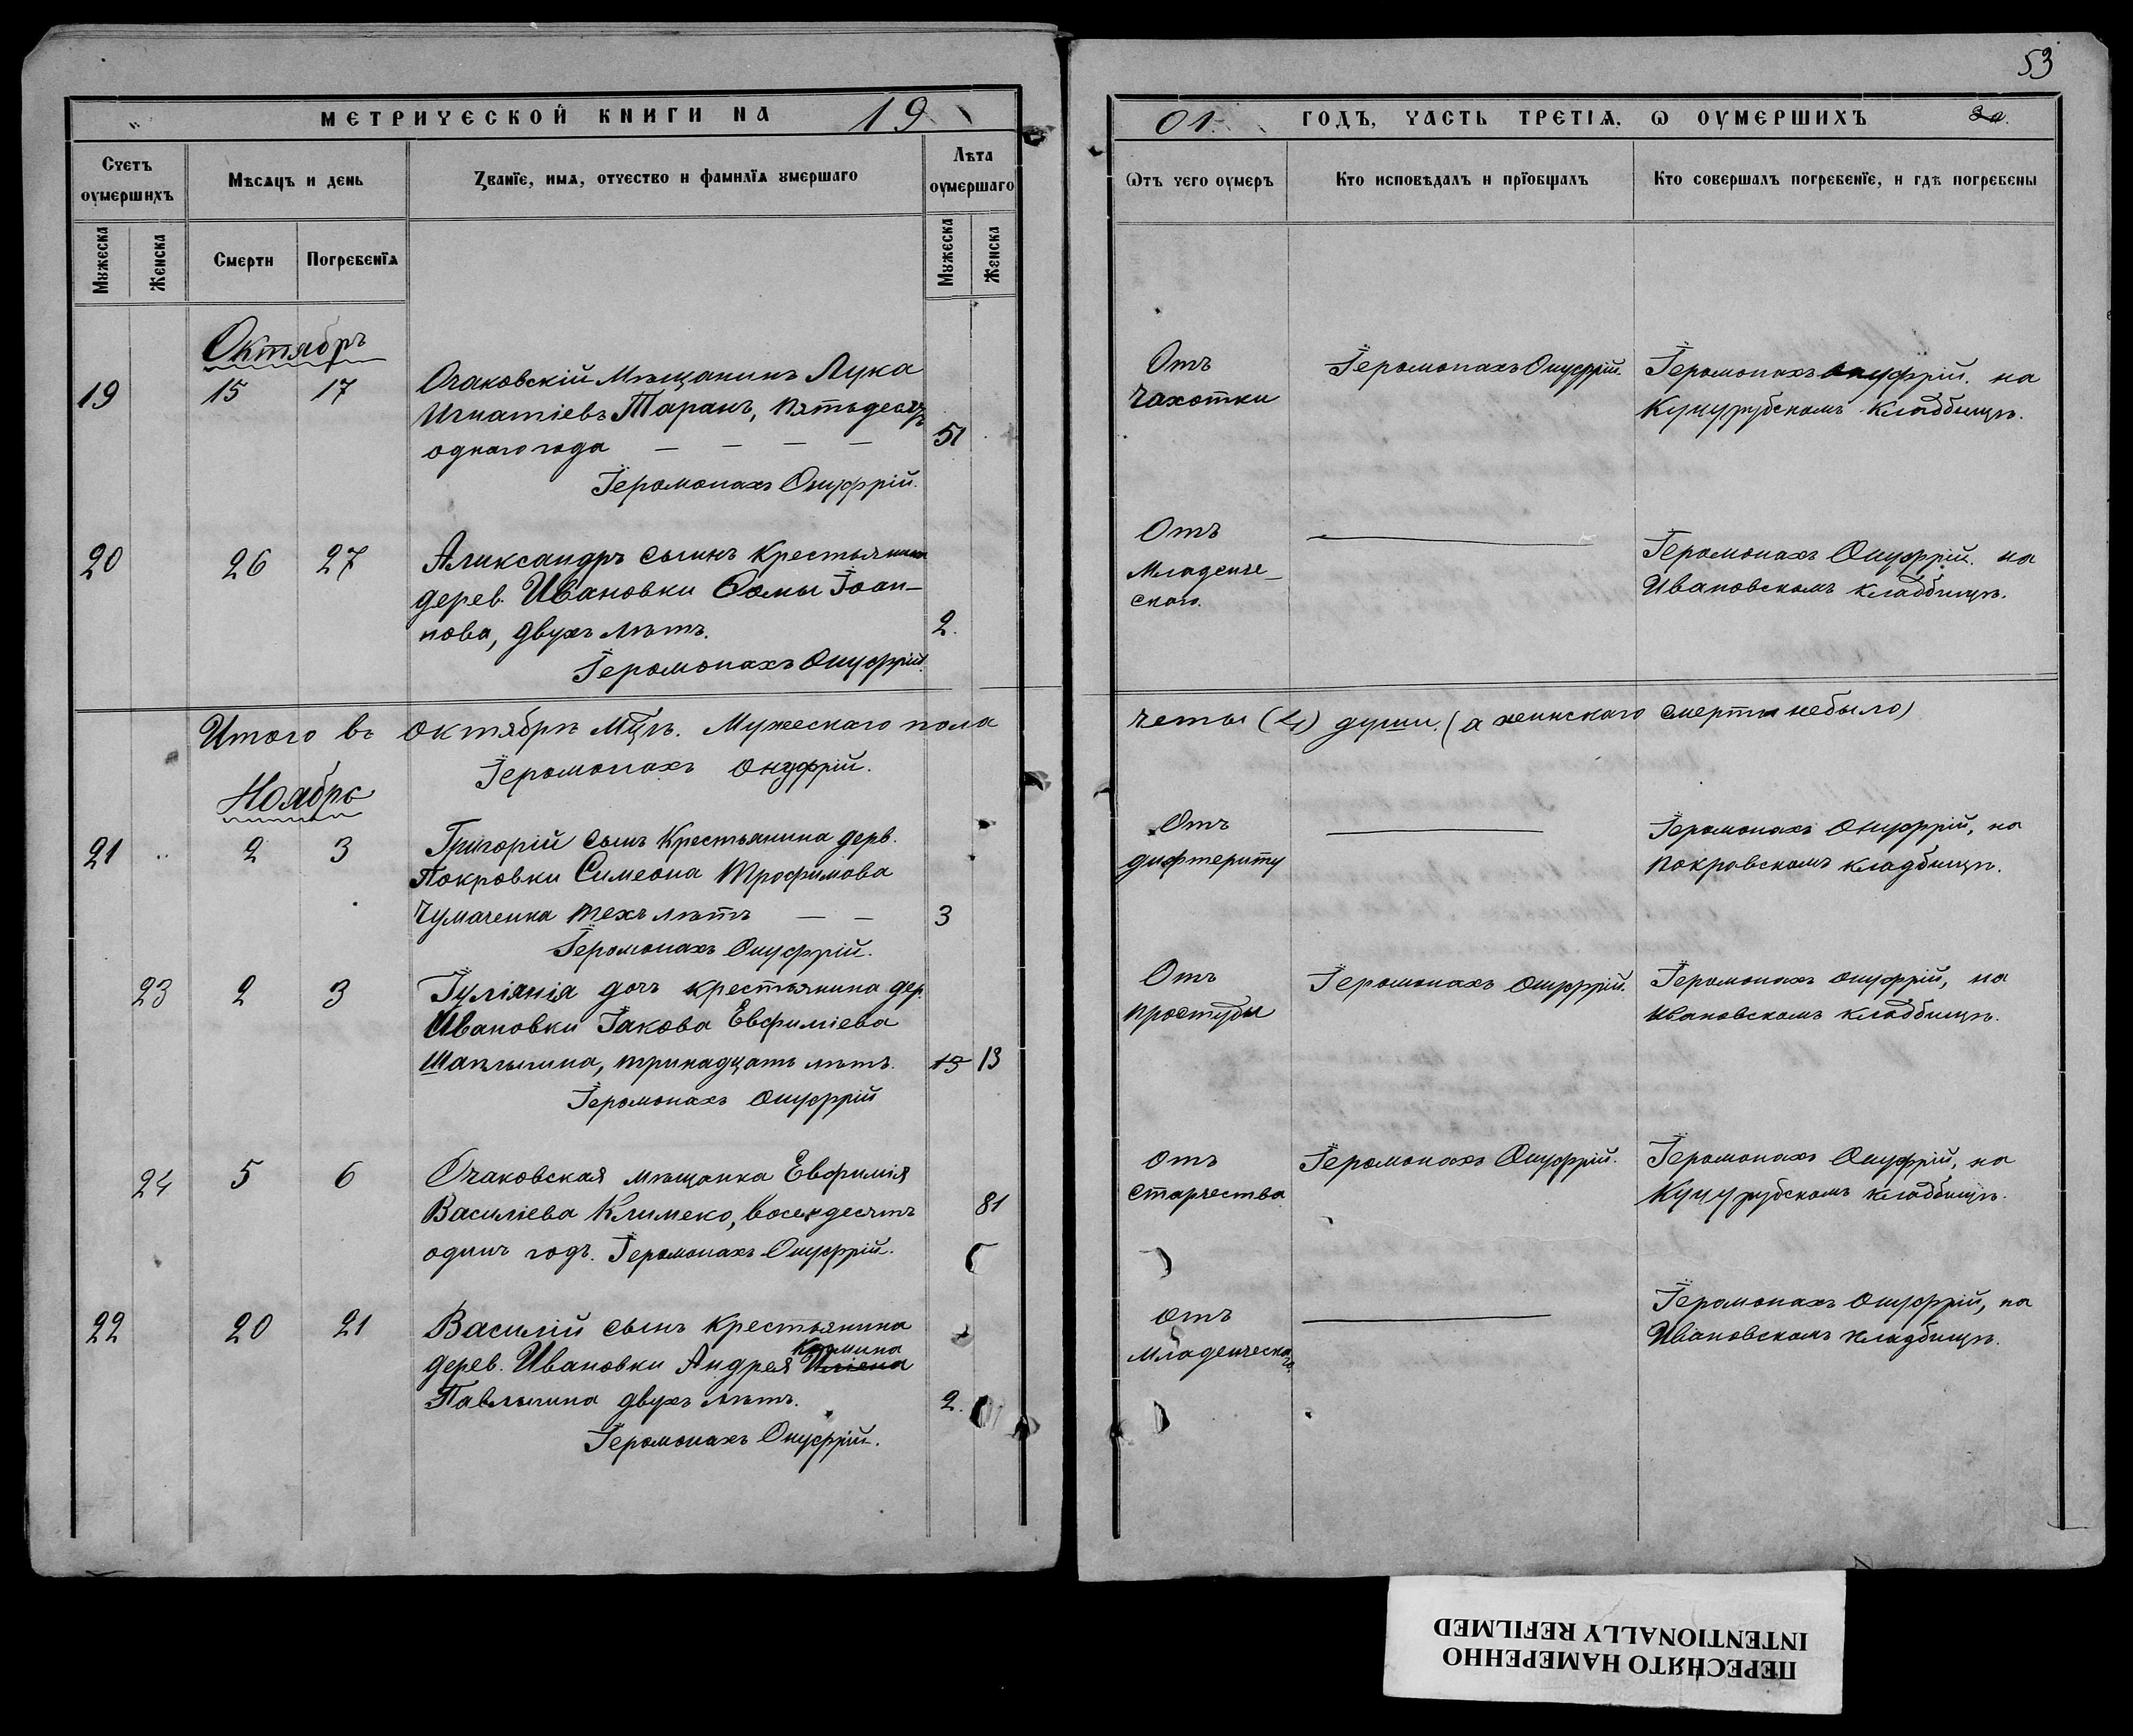 53
МЕТРИЧЕСКОЙ КНИГИ НА 19
01. ГОДЪ, ЧАСТЬ ТРЕТІѦ, Ѡ ОУМЕРШИХЪ
Счетъ оумершихъ
Мѣсѧцъ и день
Званїе, имѧ, отчество и фамилїѧ умершаго
Лѣта оумершаго
Ѿтъ чего оумеръ
Кто исповѣдалъ и прїобщалъ
Кто совершалъ погребенїе, и гдѣ погребены
Мужеска
Женска
Смерти
Погребенїѧ
Мужеска
Женска
Октябрь
19 15 17
Очаковскій Мѣщанинъ Лука
Игнатіевъ Таранъ, пятьдесятъ
однаго года — — — — 51
Іеромонахъ Онуфрій.
Отъ
Чахотки
Іеромонахъ Онуфрій.
Іеромонахъ Онуфрій. на
Куцурубскомъ Кладбищѣ.
20 26 27
Александръ сынъ Крестьянина
дерев. Ивановки Ѳомы Іоан-
нова, двухъ лѣтъ. 2.
Іеромонахъ Онуфрій.
Отъ
Младенче-
скаго.
Іеромонахъ Онуфрій. на
Ивановскомъ кладбищѣ.
Итого въ октябрѣ мцѣ. Мужескаго пола
четы (4) души. (а женскаго смерти небыло)
Іеромонахъ Онуфрій.
Ноябрь
21 2 3
Григорій сынъ Крестьянина дерв.
Покровки Симеона Трофимова
Чумаченка техъ лѣтъ — — 3
Іеромонахъ Онуфрій.
Отъ
дифтериту
Іеромонахъ Онуфрій, на
покровскомъ кладбищѣ.
23 2 3
Іуліанія дочь крестьянина дер.
Ивановки Іакова Евфиміева
Шаплыгина, тринадцать лѣтъ. 13 13
Іеромонахъ Онуфрій
Отъ
простуды
Іеромонахъ Онуфрій.
Іеромонахъ Онуфрій, на
Ивановскомъ кладбищѣ.
24 5 6
Очаковская мѣщанка Евфимія
Василіева Климеко, восемдесятъ 81
одинъ годъ. Іеромонахъ Онуфрій.
Отъ
старчества
Іеромонахъ Онуфрій.
Іеромонахъ Онуфрій, на
Куцурубскомъ кладбищѣ.
22 20 21
Василій сынъ крестьянина
дерев. Ивановки Андрея
Павлыгина двухъ лѣтъ. 2.
Іеромонахъ Онуфрій.
Отъ
Младенческаго.
Іеромонахъ Онуфрій, на
Ивановскомъ кладбищѣ.
ПЕРЕСНЯТО НАМЕРЕННО
INTENTIONALLY REFILMED